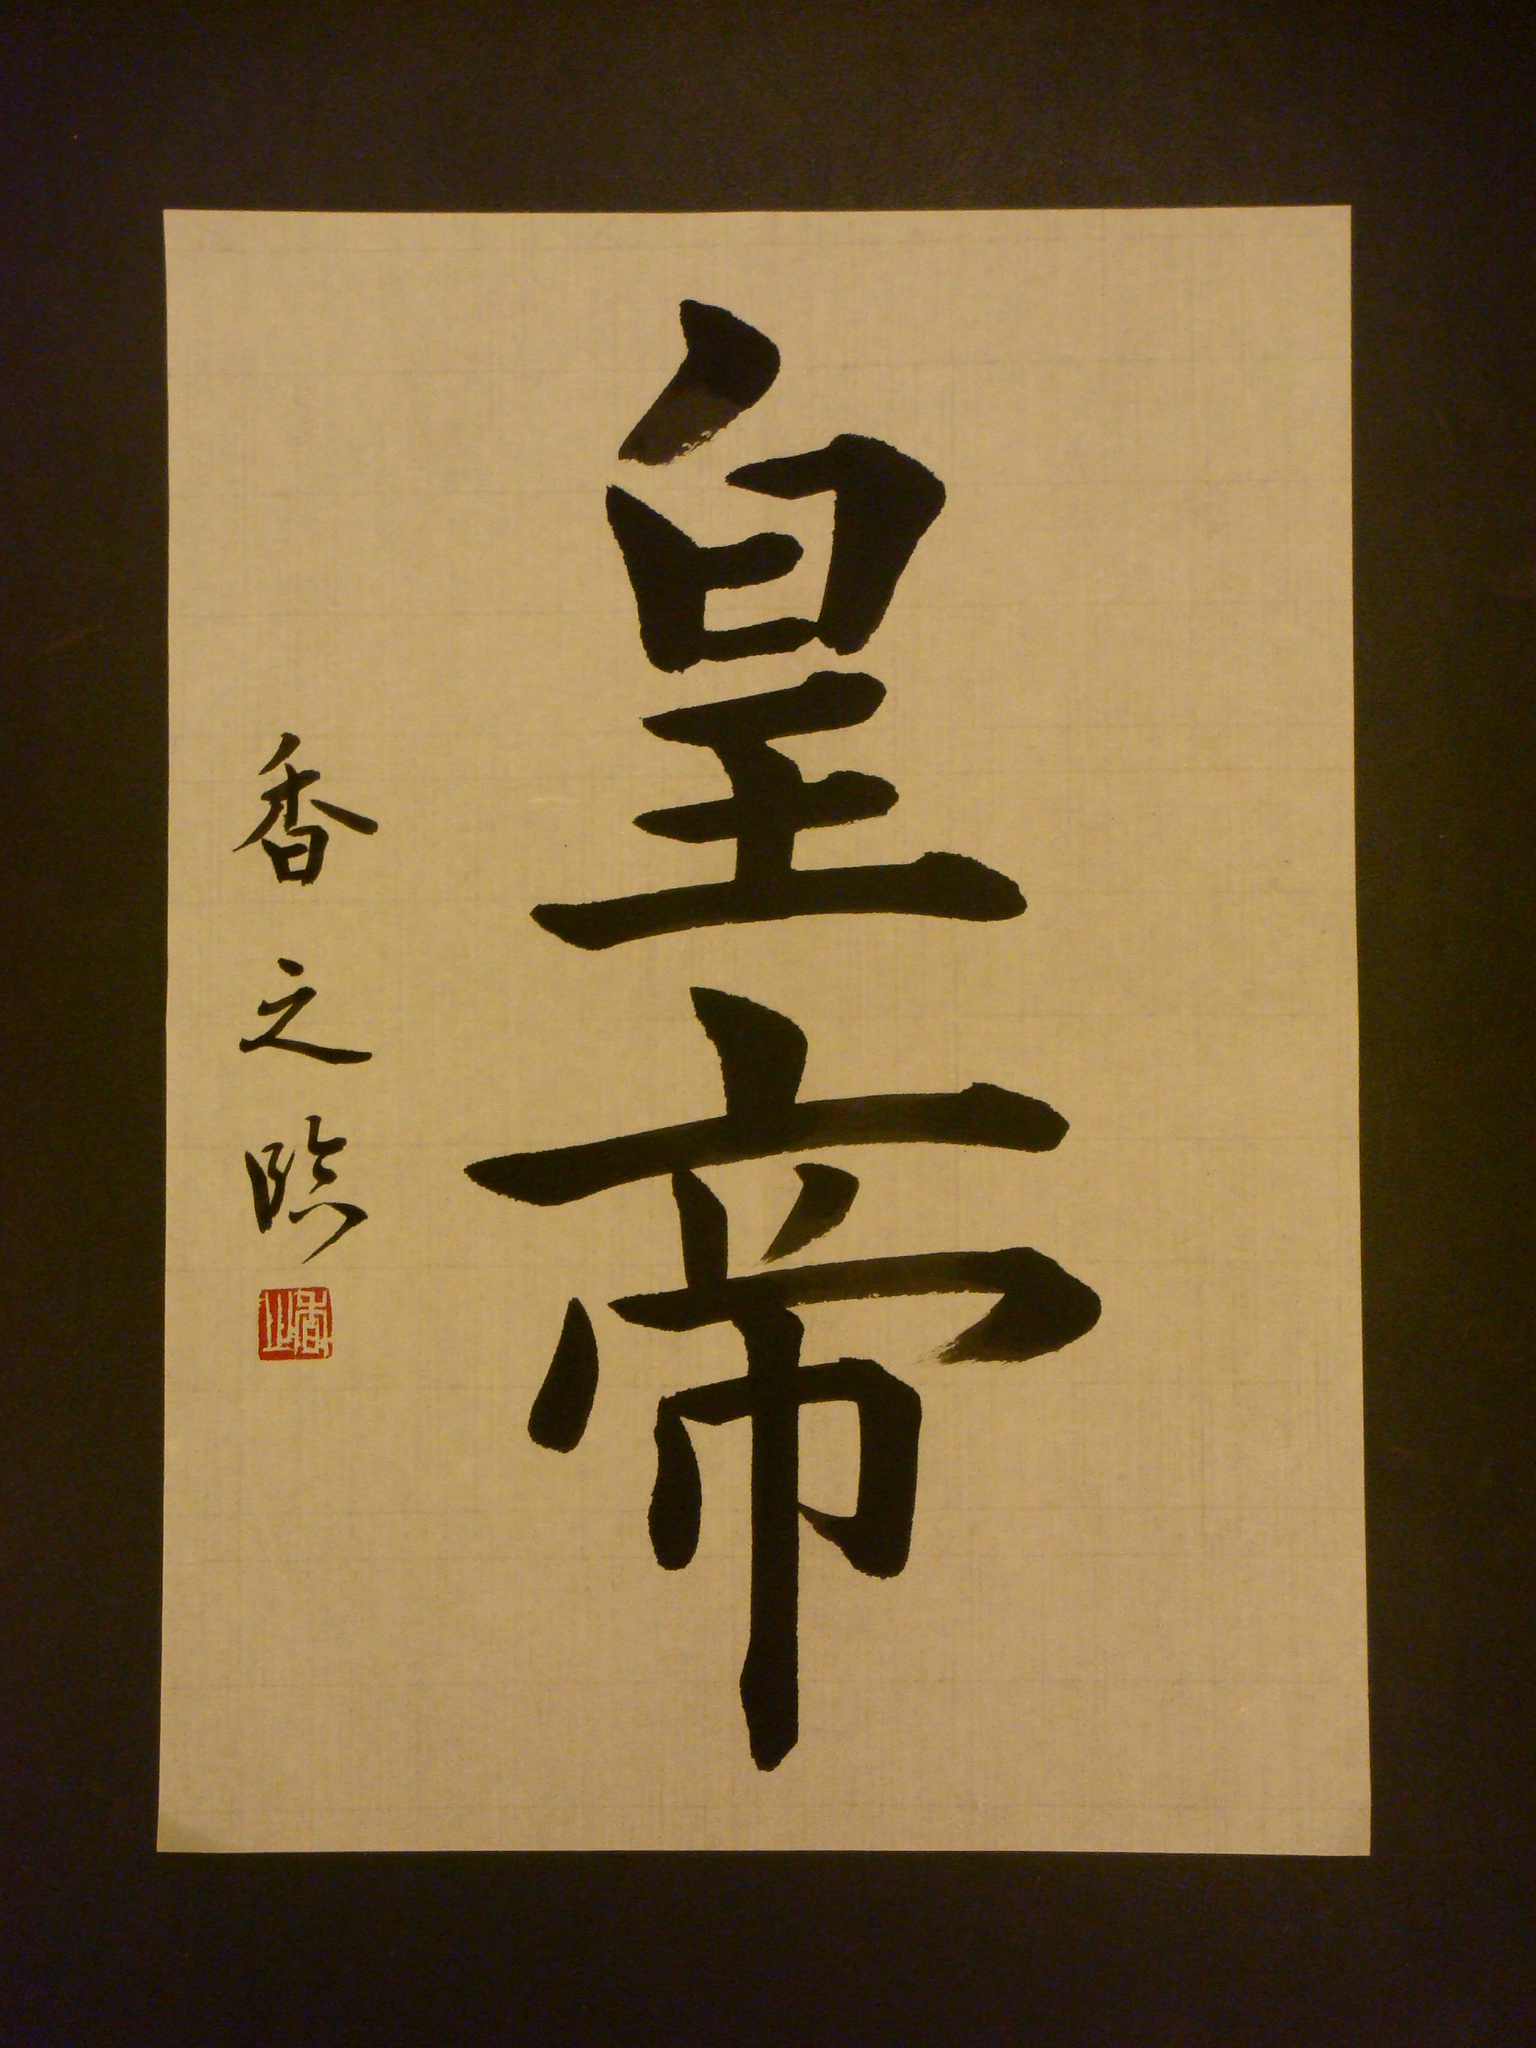 皇帝
香之臨